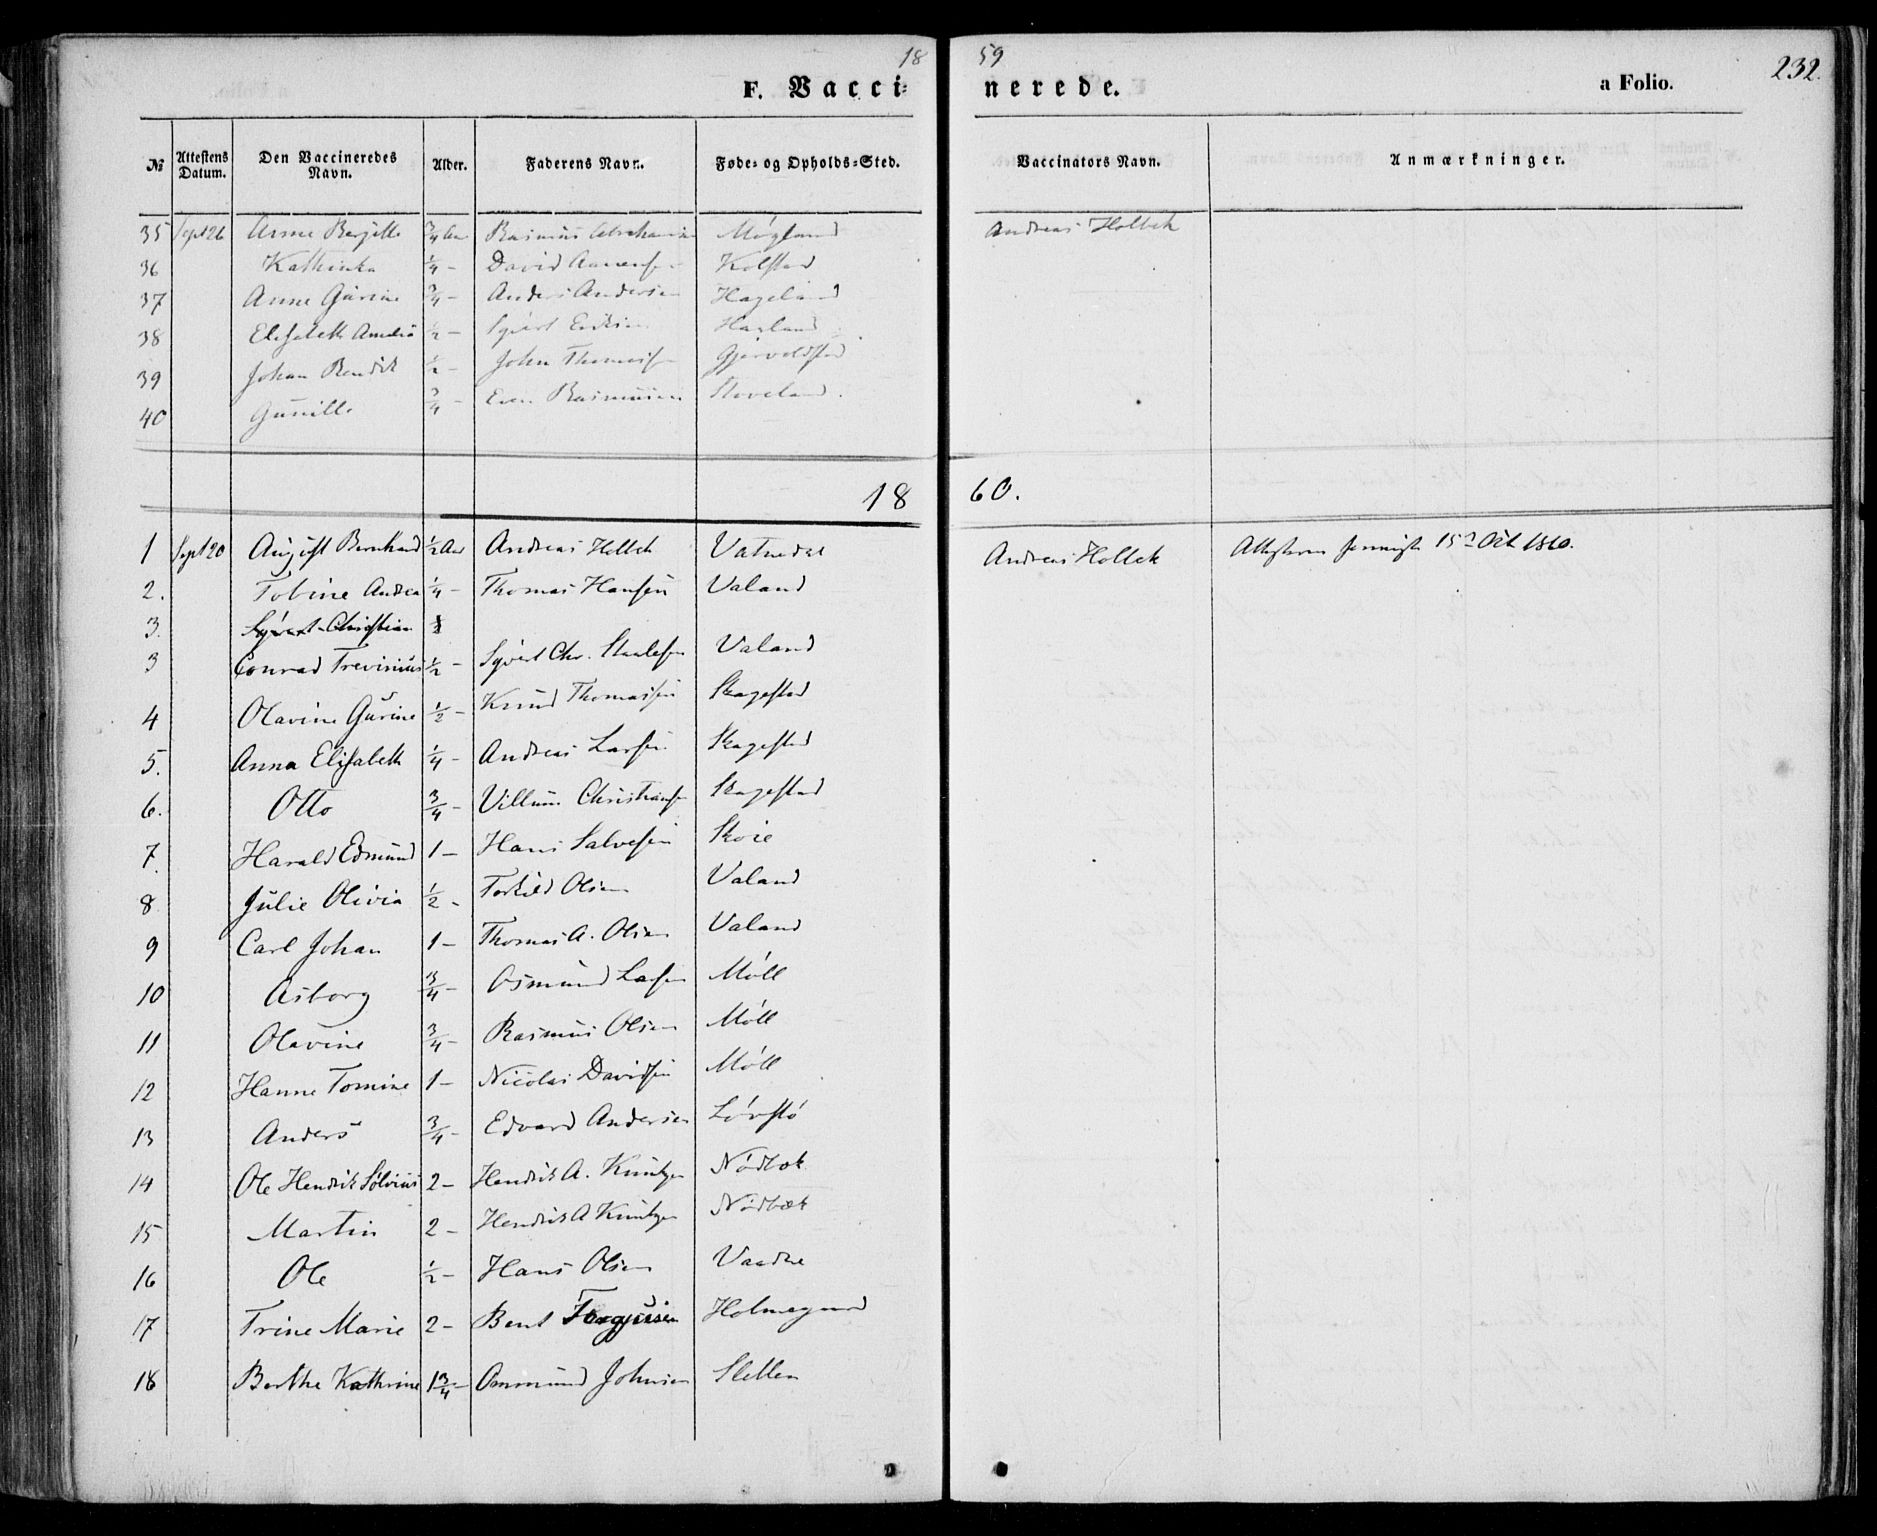 18 59
232.
F. Vacci= nerede. a Folio.
No Attestens Datum. Den Vaccineredes Navn. Alder. Faderens Navn. Føde= og Opholds=Sted. Vaccinators Navn. Anmærkninger.
35 Sept 26 Anne Bergitte 3/4 Aar Rasmus Møgland Andreas Holbek
36 Kathinka 1/4 - David Aanensen Kolstad
37 Anne Gurine 3/4 - Anders Andersen Hageland
38 Elisabeth Amalia 1/2 - Syvert Harland
39 Johan Bendik 1/2 - John Thomassen Gjervoldstad
40 Gunille 3/4 - Even Rasmusen Stoveland.
18 60.
1 Sept 20 August Bernhard 1/2 Aar Andreas Holbek Vatnedal Andreas Holbek 15de Oct 1860.
2. Tobine Andrea 1/4 - Thomas Hansen Valand
3. Syvert Christian
3 Conrad Trevinius 1/2 - Syvert Chr. Staalesen Valand
4 Olavine Gurine 1/2 - Knud Thomassen Skagestad
5. Anna Elisabeth 1/4 - Andreas Larsen Skagestad
6. Otto 3/4 - Villum Christiansen Skagestad
7. Harald Edmund 1 - Hans Salvesen Skoie
8 Julie Olivia 1/2 - Torkild Olsen Valand
9 Carl Johan 1 - Thomas A. Olsen Valand
10 Asborg 3/4 - Osmund Larsen Møll
11 Olavine 3/4 - Rasmus Olsen Møll
12 Hanne Tomine 1 - Nicolai Davidsen Møll
13 Anders 3/4 - Edvard Andersen Løvstø
14 Ole Henrik Sølvius 2 - Hendrik A. Knutzen Nødbæk
15 Martin 2 - Hendrik A Knutzen Nødbæk
16 Ole 1/2 - Hans Olsen
17 Trine Marie 2 - Bent Torgjusen Holmegaard
18 Berthe Kathrine 1 3/4 - Ommund Johnsen Sletten